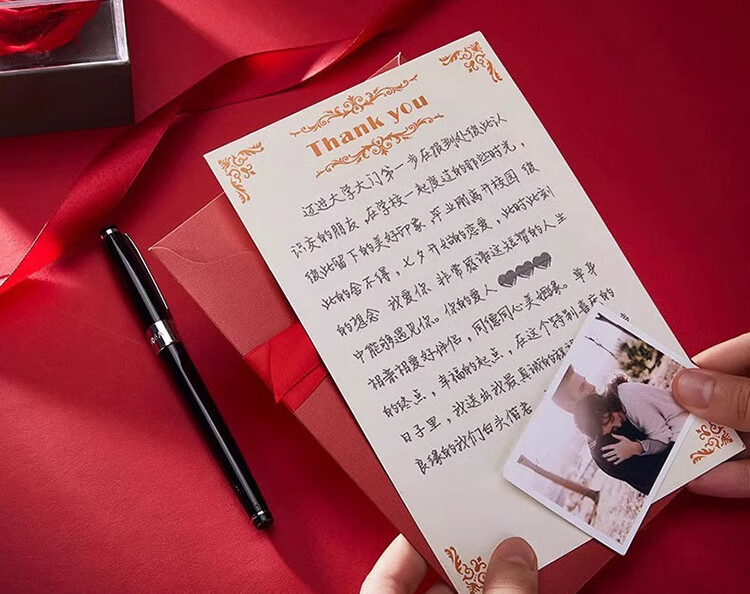 Thank you
迈进大学大门第一步在报到处彼此认
识交的朋友，在学校一起度过的那些时光，
彼此留下的美好印象 毕业刚离开校园 彼
此的舍不得，七夕开始的恋爱，此时此刻
的想念 我爱你 非常感谢这短暂的人生
中能够遇见你。你的爱人
相亲相爱好伴侣，同德同心美姻缘。单身
的终点，幸福的起点，在这个特别喜庆的
日子里，我送出我最真诚的祝
良缘的我们白头偕老